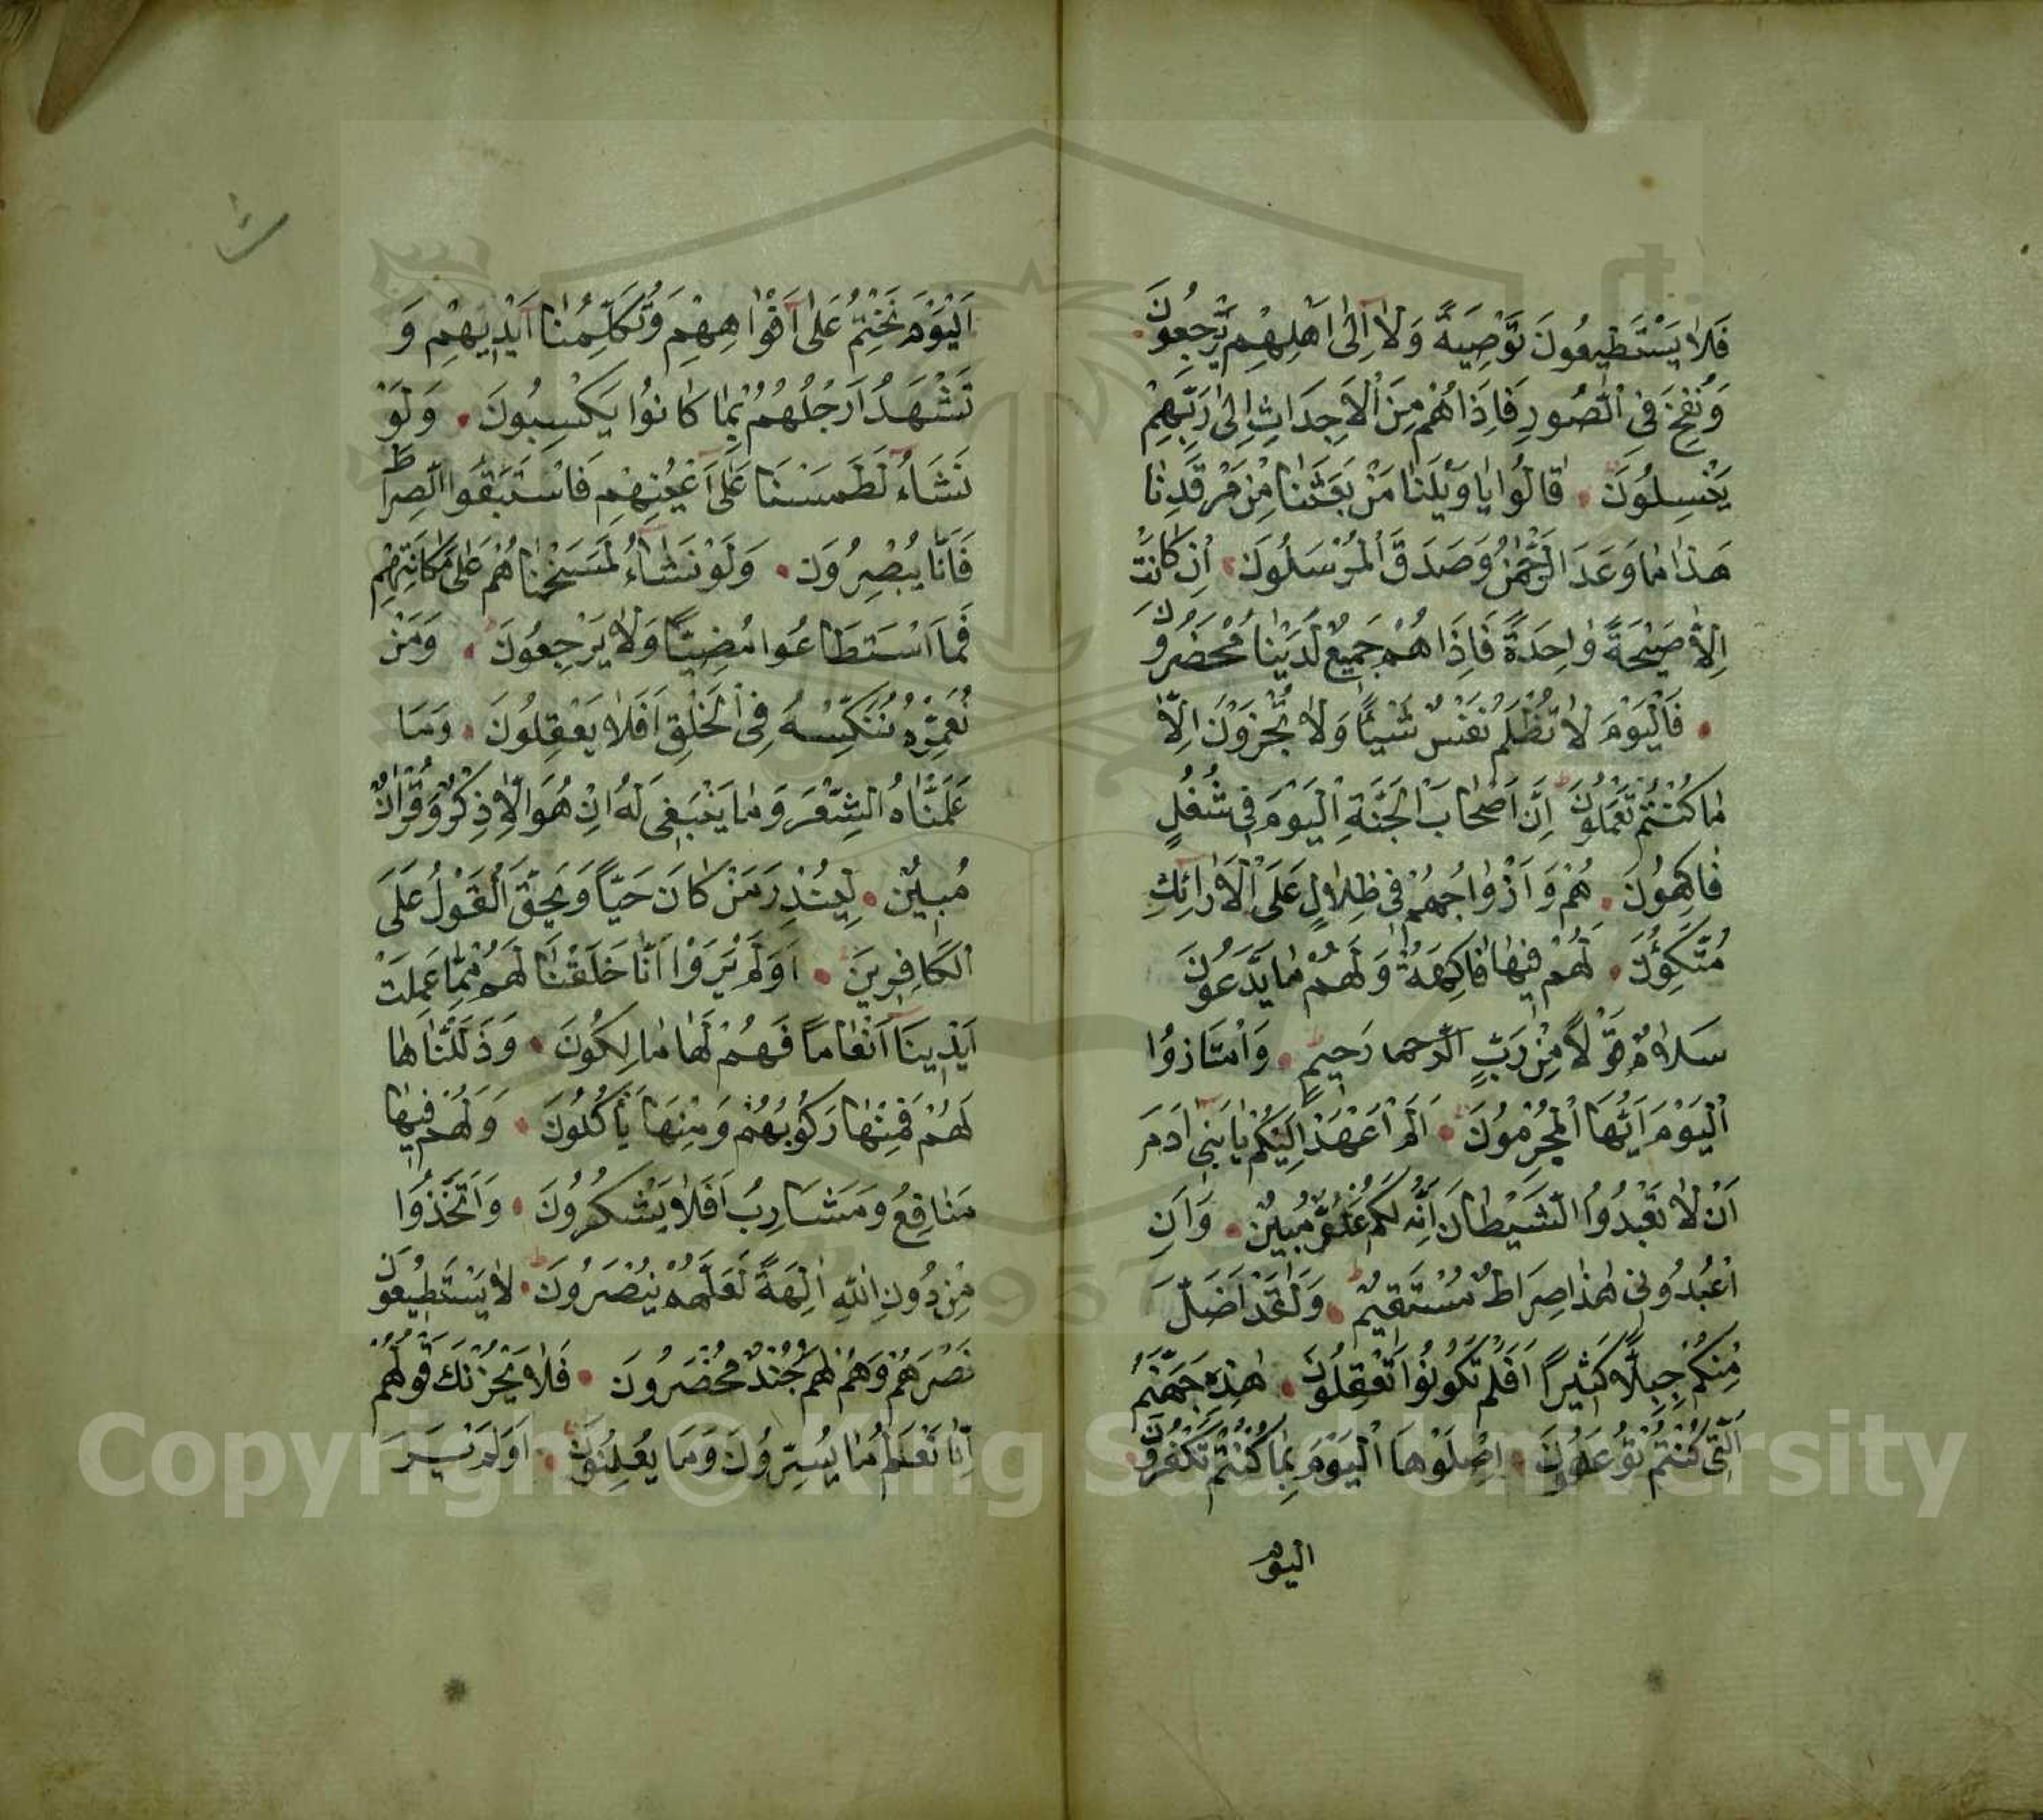 فَلَا يَسْتَطِيعُونَ تَوْصِيَةً وَلَا إِلَى أَهْلِهِمْ يَرْجِعُونَ
وَنُفِخَ فِي الصُّورِ فَإِذَا هُمْ مِنَ الْأَجْدَاثِ إِلَى رَبِّهِمْ
يَنْسِلُونَ قَالُوا يَا وَيْلَنَا مَنْ بَعَثَنَا مِنْ مَرْقَدِنَا
هَذَا مَا وَعَدَ الرَّحْمَنُ وَصَدَقَ الْمُرْسَلُونَ إِنْ كَانَتْ
إِلَّا صَيْحَةً وَاحِدَةً فَإِذَا هُمْ جَمِيعٌ لَدَيْنَا مُحْضَرُونَ
فَالْيَوْمَ لَا تُظْلَمُ نَفْسٌ شَيْئًا وَلَا تُجْزَوْنَ إِلَّا
مَا كُنْتُمْ تَعْمَلُونَ إِنَّ أَصْحَابَ الْجَنَّةِ الْيَوْمَ فِي شُغُلٍ
فَاكِهُونَ هُمْ وَأَزْوَاجُهُمْ فِي ظِلَالٍ عَلَى الْأَرَائِكِ
مُتَّكِؤُنَ لَهُمْ فِيهَا فَاكِهَةٌ وَلَهُمْ مَا يَدَّعُونَ
سَلَامٌ قَوْلًا مِنْ رَبٍّ الرحما رَحِيمٍ وَامْتَازُوا
الْيَوْمَ أَيُّهَا الْمُجْرِمُونَ أَلَمْ أَعْهَدْ إِلَيْكُمْ يَا بَنِي آدَمَ
أَنْ لَا تَعْبُدُوا الشَّيْطَانَ إِنَّهُ لَكُمْ عَدُوٌّ مُبِينٌ وَأَنِ
اعْبُدُونِي هَذَا صِرَاطٌ مُسْتَقِيمٌ وَلَقَدْ أَضَلَّ
مِنْكُمْ جِبِلًّا كَثِيرًا أَفَلَمْ تَكُونُوا تَعْقِلُونَ هَذِهِ جَهَنَّمُ
الَّتِي كُنْتُمْ تُوعَدُونَ اِصْلَوْهَا الْيَوْمَ بِمَا كُنْتُمْ تَكْفُرُونَ
اليوم
اَلْيَوْمَ نَخْتِمُ عَلَى أَفْوَاهِهِمْ وَتُكَلِّمُنَا أَيْدِيهِمْ وَ
تَشْهَدُ أَرْجُلُهُمْ بِمَا كَانُوا يَكْسِبُونَ وَلَوْ
نَشَاءُ لَطَمَسْنَا عَلَى أَعْيُنِهِمْ فَاسْتَبَقُوا الصِّرَاطَ
فَأَنَّا يُبْصِرُونَ وَلَوْ نَشَاءُ لَمَسَخْنَاهُمْ عَلَى مَكَانَتِهِمْ
فَمَا اسْتَطَاعُوا مُضِيًّا وَلَا يَرْجِعُونَ وَمَنْ
نُعَمِّرْهُ نُنَكِّسْهُ فِي الْخَلْقِ أَفَلَا يَعْقِلُونَ وَمَا
عَلَّمْنَاهُ الشِّعْرَ وَمَا يَنْبَغِي لَهُ إِنْ هُوَ إِلَّا ذِكْرٌ وَقُرْآنٌ
مُبِينٌ لِيُنْذِرَ مَنْ كَانَ حَيًّا وَيَحِقَّ الْقَوْلُ عَلَى
الْكَافِرِينَ أَوَلَمْ يَرَوْا أَنَّا خَلَقْنَا لَهُمْ مِمَّا عَمِلَتْ
أَيْدِينَا أَنْعَامًا فَهُمْ لَهَا مَالِكُونَ وَذَلَّلْنَاهَا
لَهُمْ فَمِنْهَا رَكُوبُهُمْ وَمِنْهَا يَأْكُلُونَ وَلَهُمْ فِيهَا
مَنَافِعُ وَمَشَارِبُ أَفَلَا يَشْكُرُونَ وَاتَّخَذُوا
مِنْ دُونِ اللهِ آلِهَةً لَعَلَّهُمْ يُنْصَرُونَ لَا يَسْتَطِيعُونَ
نَصْرَهُمْ وَهُمْ لَهُمْ جُنْدٌ مُحْضَرُونَ فَلَا يَحْزُنْكَ قَوْلُهُمْ
إِنَّا نَعْلَمُ مَا يُسِرُّونَ وَمَا يُعْلِنُونَ أَوَلَمْ يَرَ
Copyright © King Saud University
1957